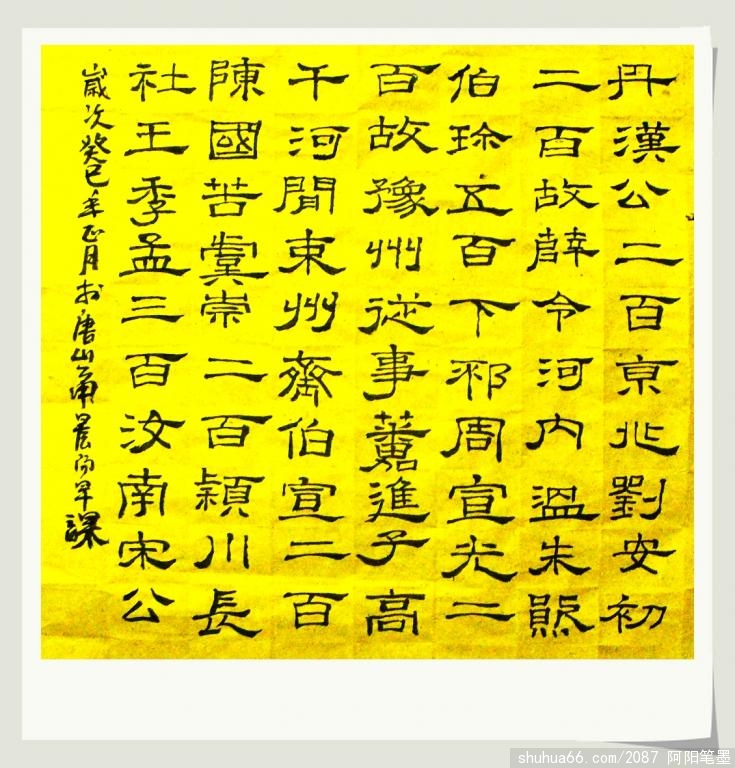 丹漢公二百京兆劉安初
二百故薛令河內溫朱熙
伯珍五百下邳周宣光二
百故豫州從事蕃嘉進子高
千河間東州齊伯宣二百
陳國苦虞崇二百潁川長
社王季孟三百汝南宋公
歲次癸巳年正月於唐山 晨 早課
shuhua66.com/2087 阿阳笔墨